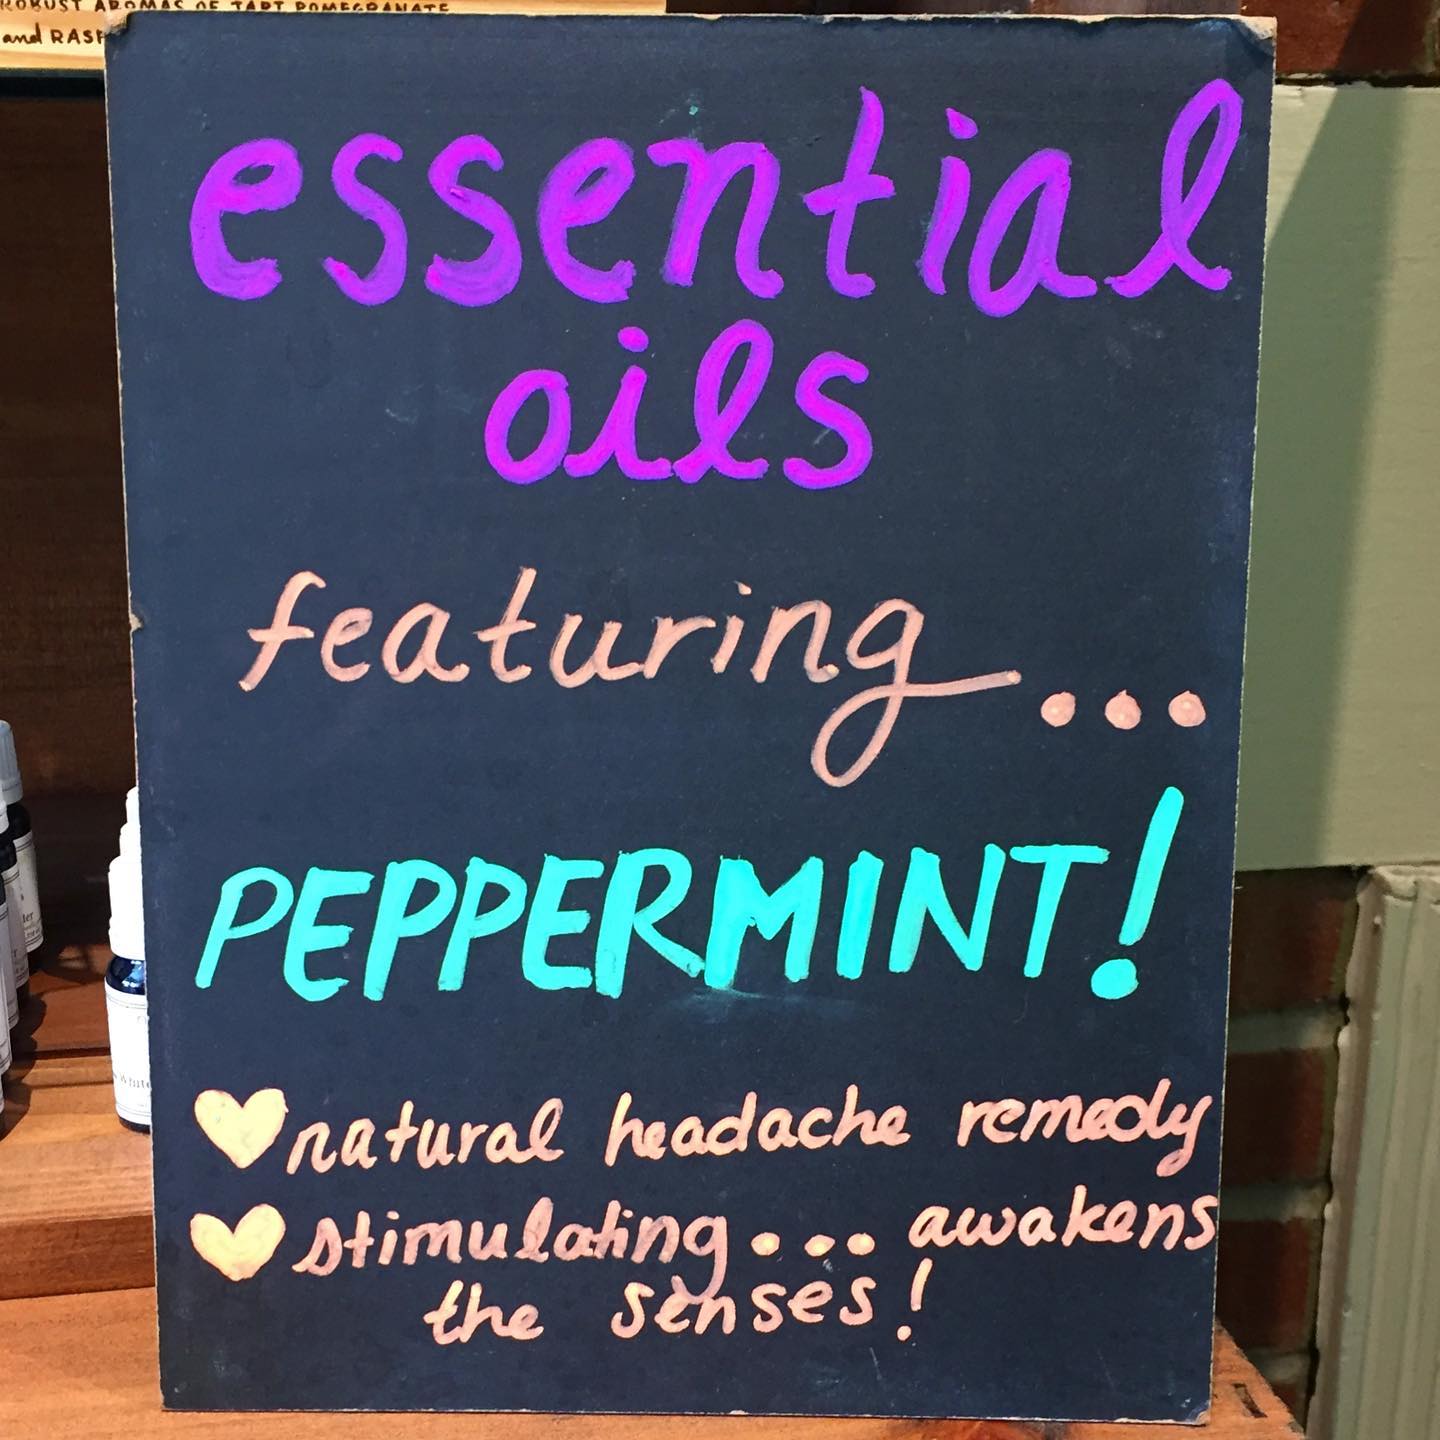 ROBUST AROMAS OF TART POMEGRANATE
and RASP
essential
oils
featuring...
PEPPERMINT!
natural headache remedy
stimulating... awakens
the senses!